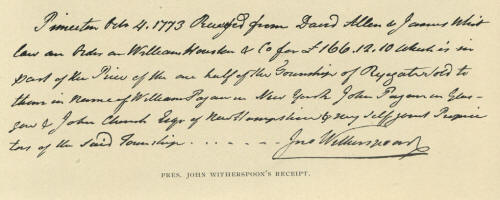 Princeton Octr 4. 1773 Received from David Allen & James Whit
law an Order on William Houston & Co for £166.12.10 which is in
part of the Price of the one half of the Township of Ryegate sold to
them in name of William Pagan in New York John Pagan in Glas-
gow & John Church Esqr of New Hampshire & my self joint Proprie
tors of the said Township
Jno Witherspoon
PRES. JOHN WITHERSPOON'S RECEIPT.